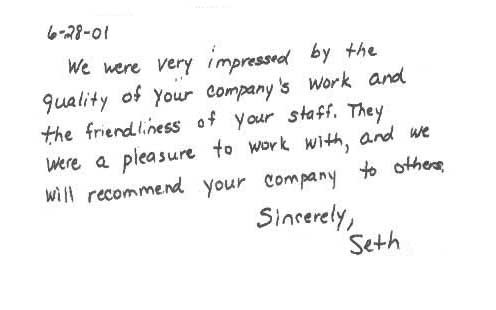 6-28-01
We were very impressed by the
quality of your company's work and
the friendliness of your staff. They
were a pleasure to work with, and we
will recommend your company to others.
Sincerely,
Seth